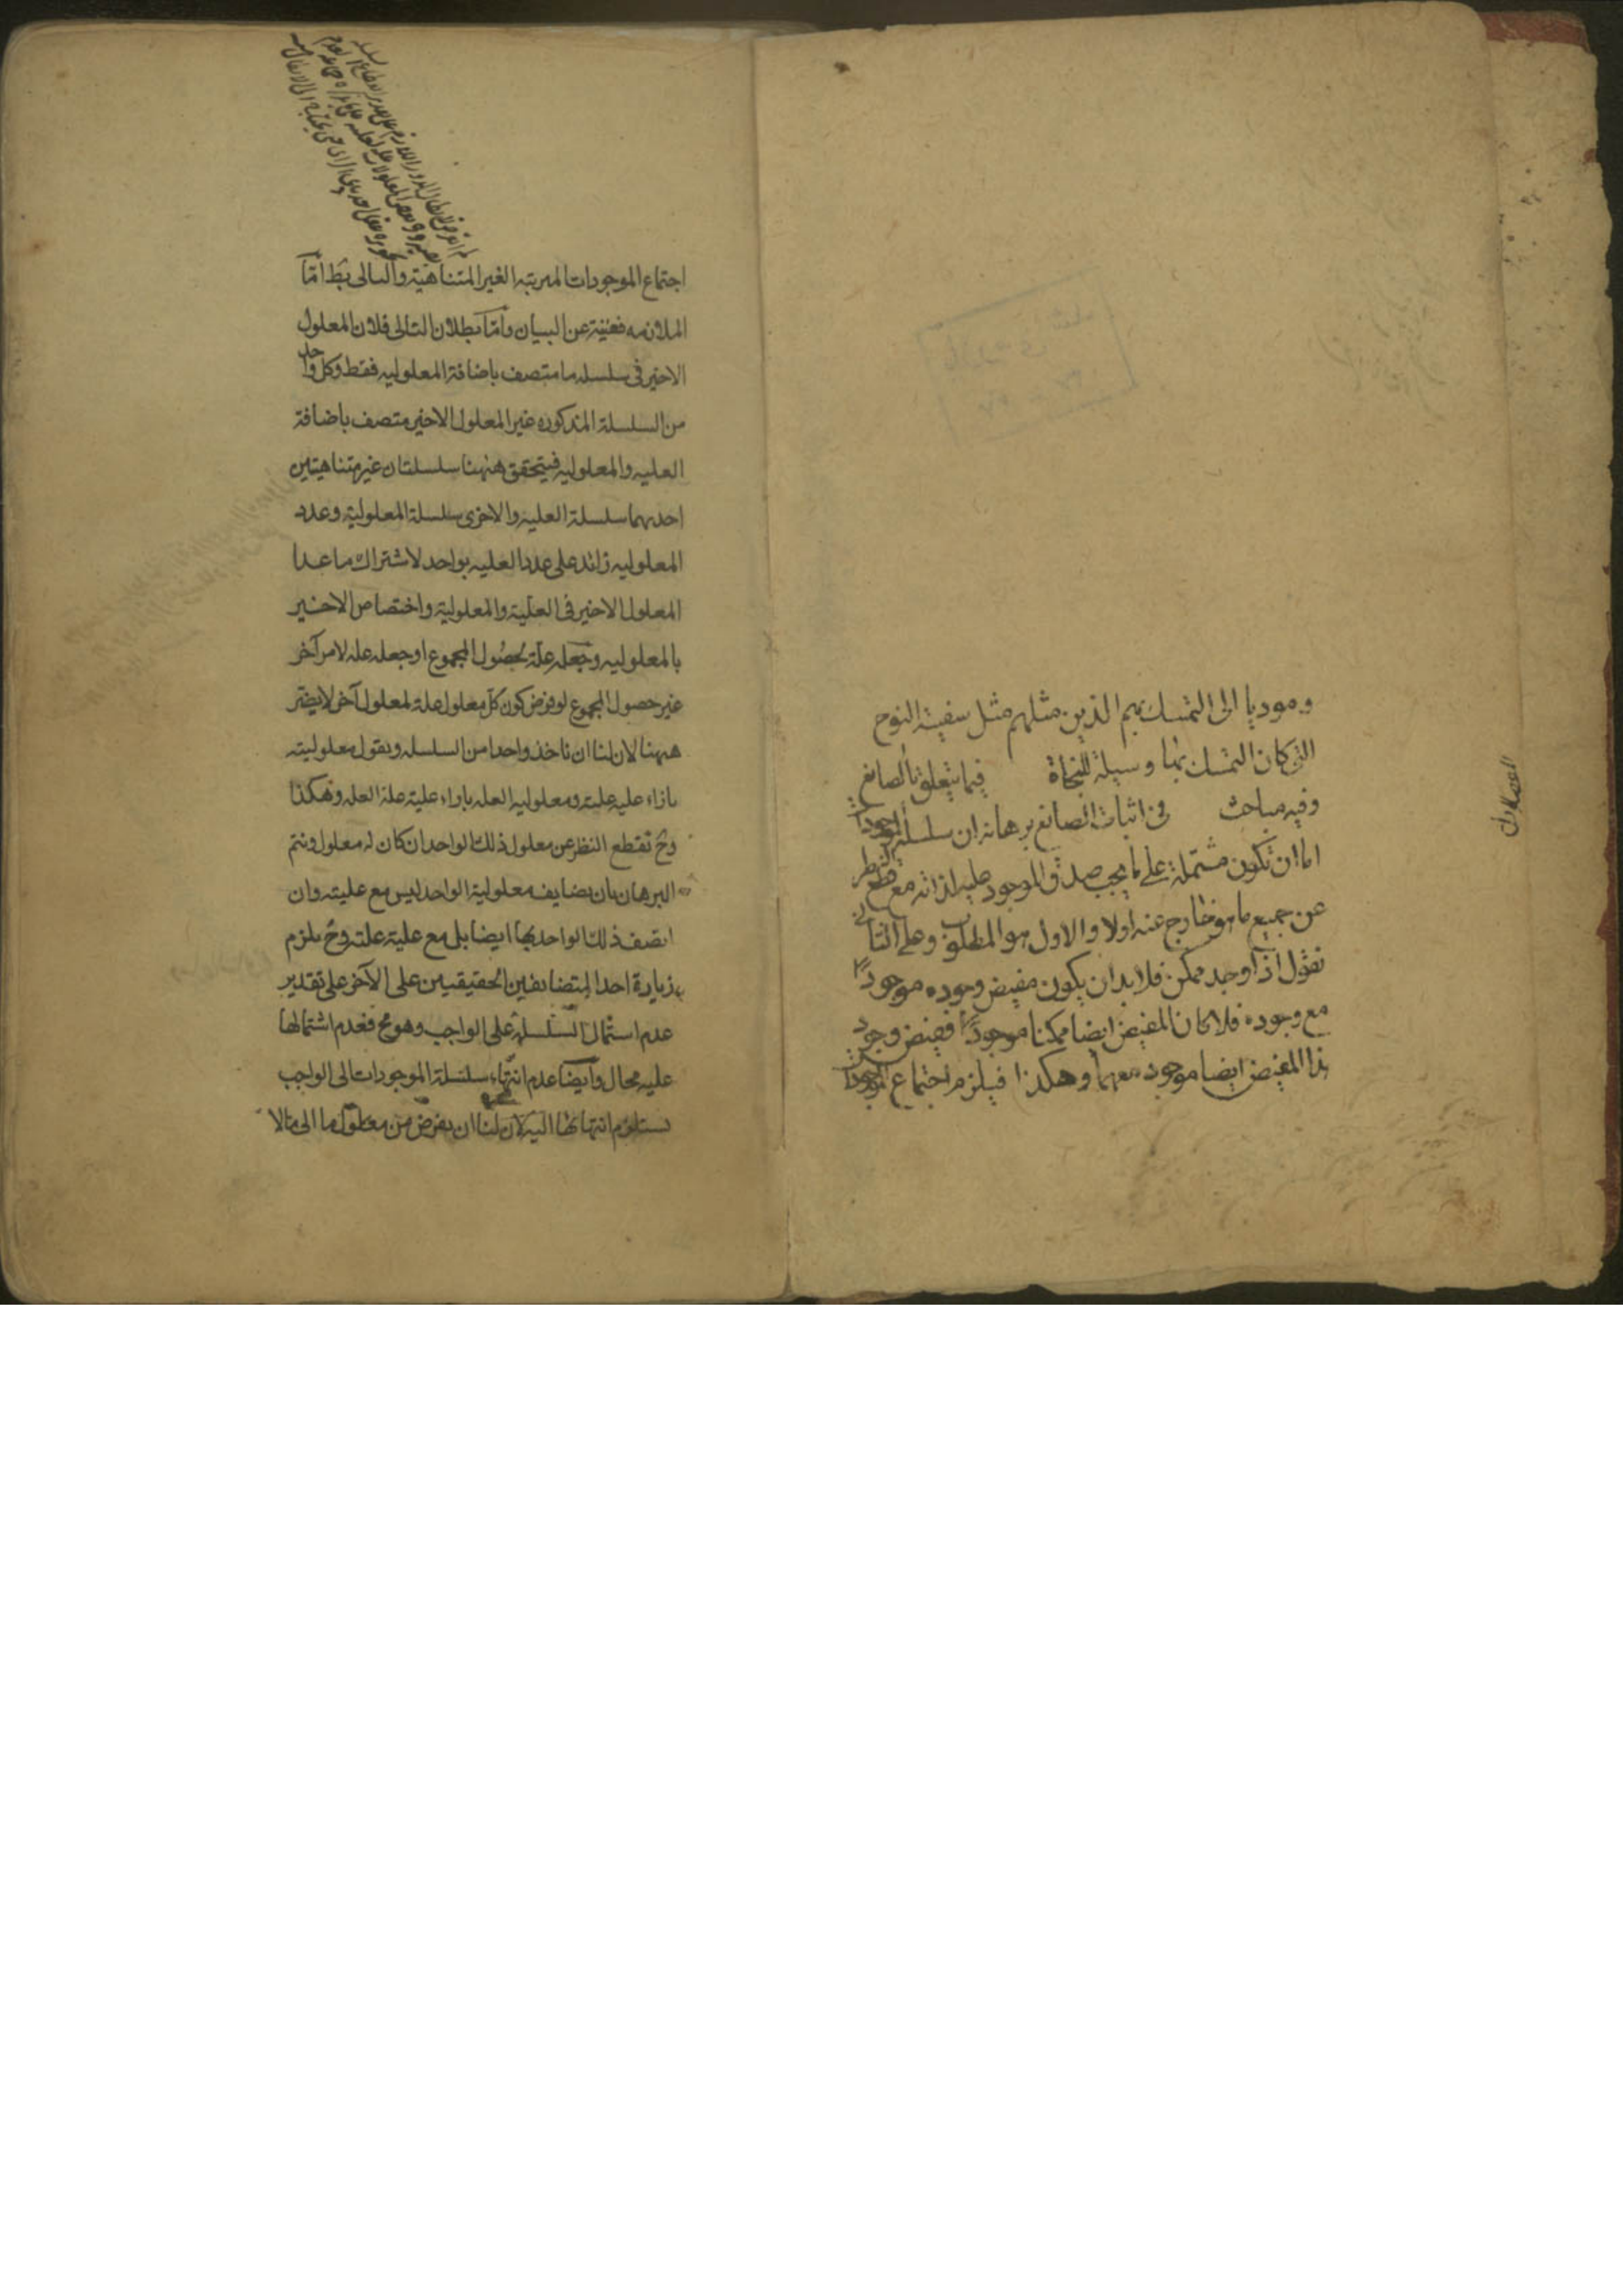 وموديا الى التمسك بهم الذين مثلهم مثل سفينة النوح
التى كان التمسك بها وسيلة للنجاة فيما يتعلق بالصانع
وفيه مباحث فى اثبات الصانع برهانه ان سلسلة الموجودات
اما ان تكون مشتملة على ما يجب صدق الموجود عليه لذاته مع قطع النظر
عن جميع ما هو خارج عنه اولا والاول هو المطلوب وعلى الثانى
نقول اذا وجد ممكن فلا بد ان يكون مفيض وجوده موجودا
مع وجوده فلا كان المفيض ايضا ممكنا موجودا ففيض وجود
هذا المفيض ايضا موجود معهما وهكذا فيلزم اجتماع الموجودات
اجتماع الموجودات المرتبه الغير المتناهية والتالى بط امّا
الملازمه فغنية عن البيان وامّا بطلان التالى فلان المعلول
الاخير فى سلسله ما متصف باضافة المعلوليه فقط وكل واحد
من السلسلة المذكوره غير المعلول الاخير متصف باضافة
العليه والمعلوليه فيتحقق ههنا سلسلتان غير متناهيتين
احديهما سلسلة العليه والاخرى سلسلة المعلولية وعدد
المعلوليه زائد على عدد العليه بواحد لاشتراك ما عدا
المعلول الاخير فى العلّية والمعلولية واختصاص الاخير
بالمعلوليه وجعله علّة لحصُول المجموع او جعله علة لامر آخر
غير حصول المجموع لو فرض كون كلّ معلول علة لمعلول آخر لا يضرّ
ههنا لان لنا ان ناخذ واحدا من السلسله ونقول معلوليته
بازاء عليه علته ومعلوليه العله بازاء علية علة العله وهكذا
وح نقطع النظر عن معلول ذلك الواحد ان كان له معلول ونتم
البرهان بان مضايف معلولية الواحد ليس مع عليته وان
اتصف ذلك الواحد بها ايضا بل مع علية علته وح يلزم
زيادة احد المتضائفين الحقيقيين على الآخر على تقدير
عدم اشتمال السلسلة على الواجب وهو مح فعدم اشتمالها
عليه محال وايضا عدم انتهاء سلسلة الموجودات الى الواجب
يستلزم انتهائها اليه لان لنا ان نفرض من معلول ما الى ما لا